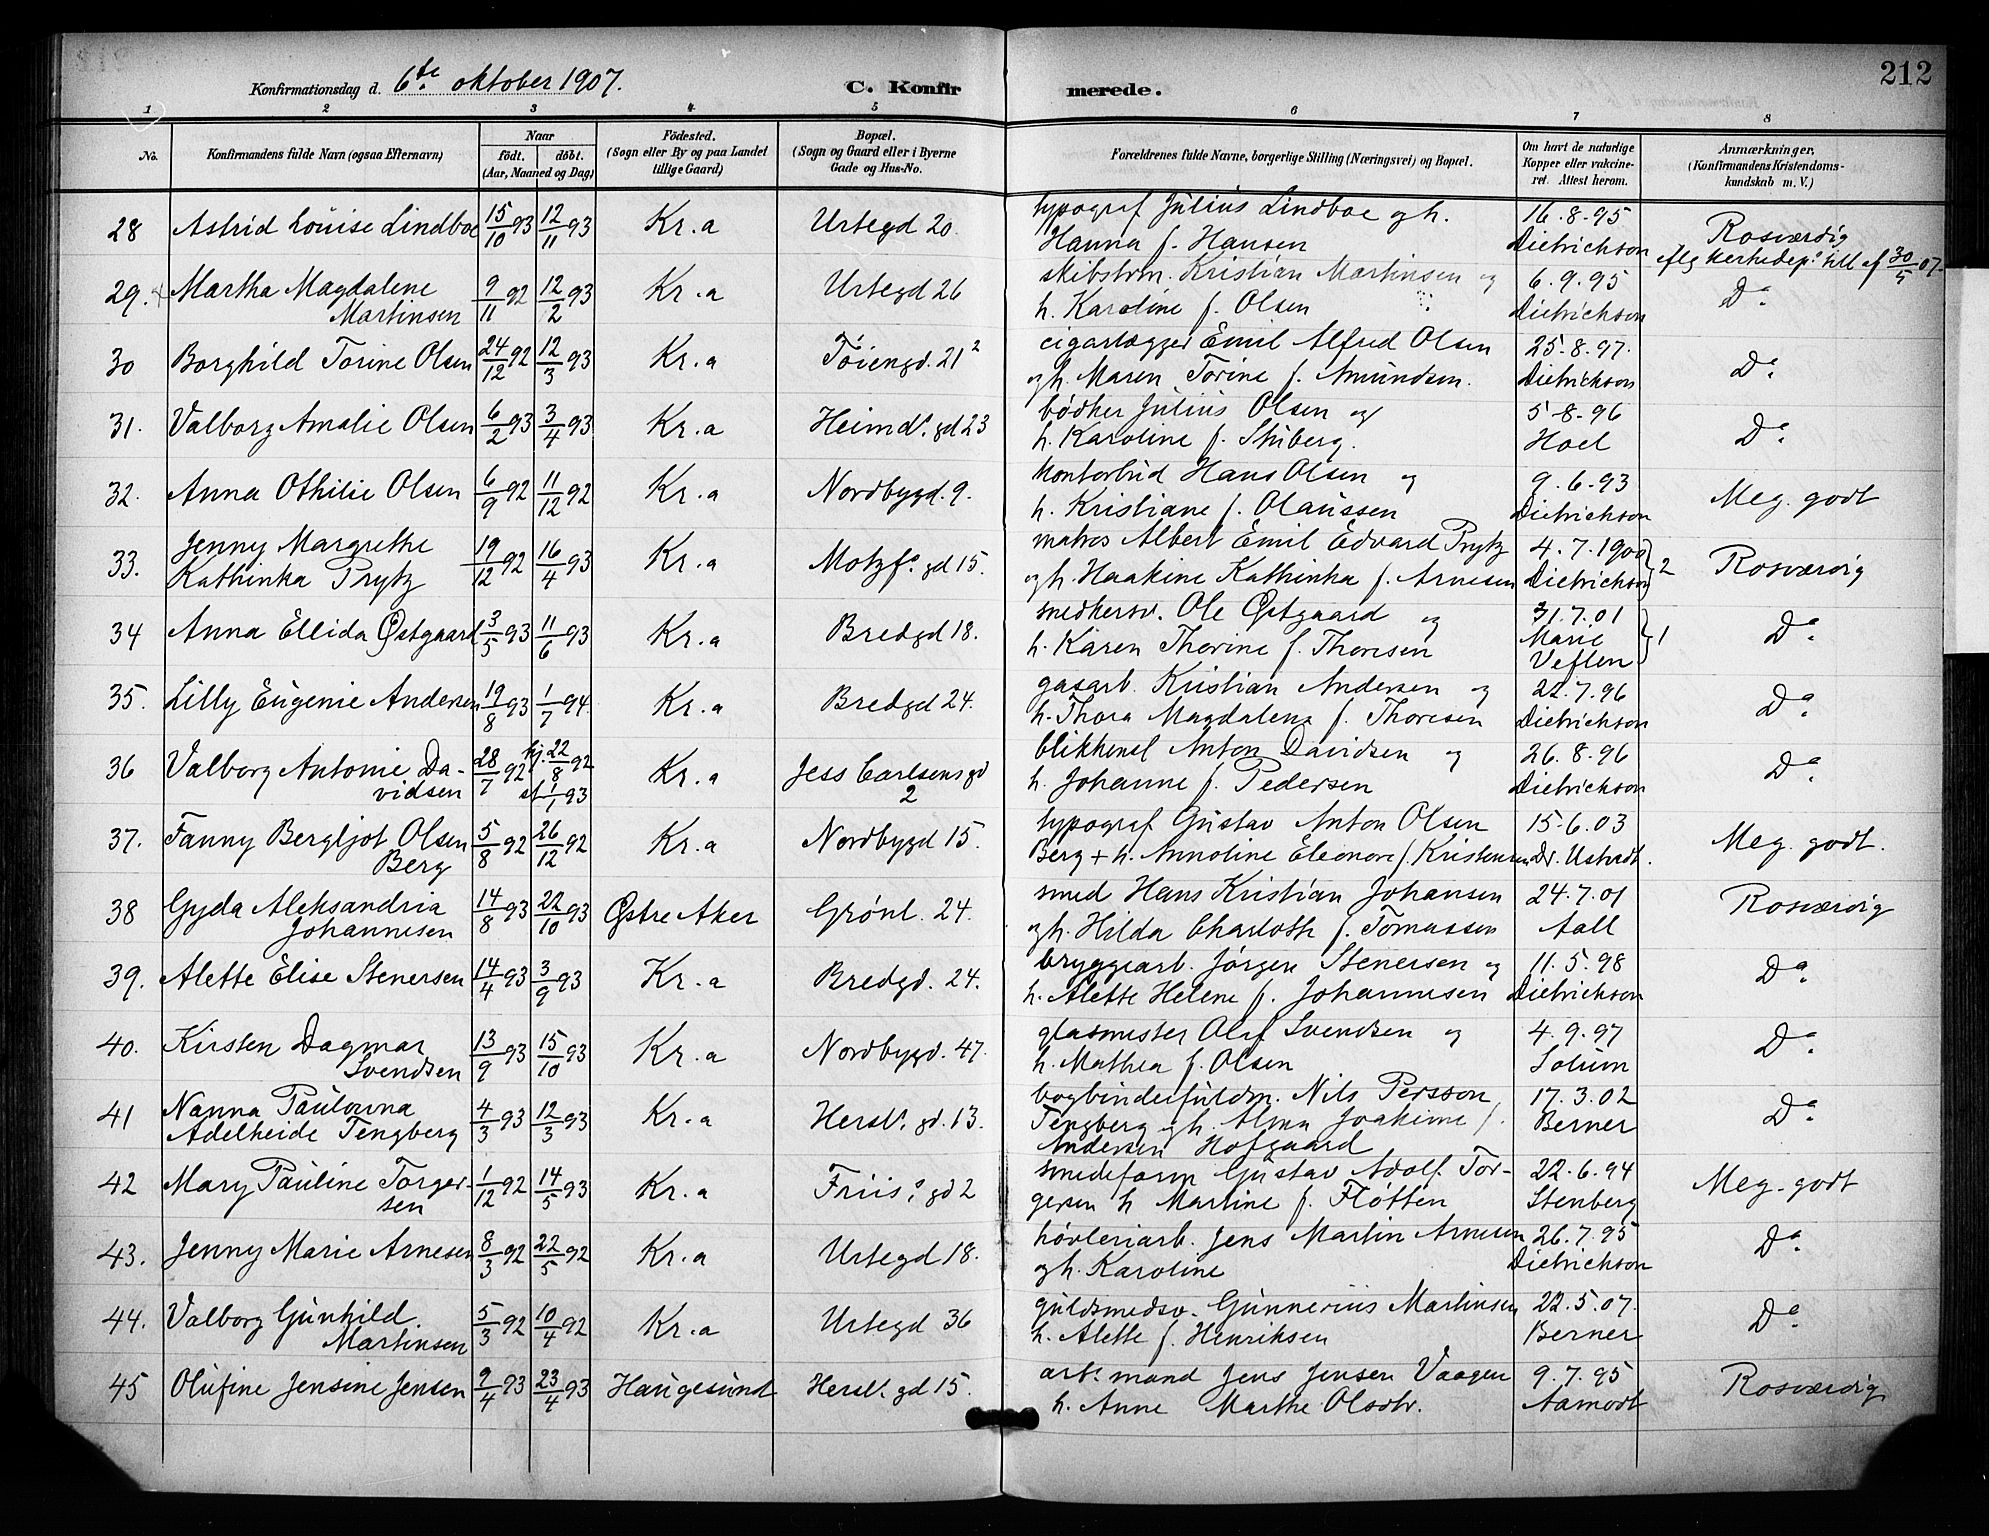 212
Konfirmationsdag d. 6te oktober 1907.
C. Konfirmerede.
1 2 3 4 5 6 7 8
No.
Konfirmandens fulde Navn (ogsaa Efternavn)
Naar
født. døbt.
(Aar, Maaned og Dag)
Fødested.
(Sogn eller By og paa Landet
tillige Gaard)
Bopæl.
(Sogn og Gaard eller i Byerne
Gade og Hus-No.
Forældrenes fulde Navne, borgerlige Stilling (Næringsvei) og Bopæl.
Om havt de naturlige
Kopper eller vakcine-
ret. Attest herom.
Anmærkninger,
(Konfirmandens Kristendoms-
kundskab m. V.)
28 Astrid Louise Lindboe 15/10 93 12/11 93 Kr.a Urtegd 20. typograf Julius Lindboe og h. 16.8.95 Rosværdig
Hanna f. Hansen Dietrichson eflg kirkedep. till af 30/5 07.
29. Martha Magdalene 9/11 92 12/2 93 Kr.a Urtegd 26 skibstm. Kristian Martinsen og 6.9.95 Do.
Martinsen h. Karoline f. Olsen Dietrichson
30 Borghild Torine Olsen 24/12 92 12/3 93 Kr.a Tøiengd. 21² cigarlægger Emil Alfred Olsen 25.8.97. Do.
og h. Maren Torine f. Amundsen. Dietrichson
31. Valborg Amalie Olsen 6/2 93 3/4 93 Kr.a Heimdl. gd 23 bødker Julius Olsen og 5-8-96 Do.
h. Karoline f. Stuberg. Hoel
32. Anna Othilie Olsen 6/9 92 11/12 92 Kr.a Nordbygd. 9. kontorbud Hans Olsen og 9.6.93 Meg. godt
h. Kristiane f. Olaussen Dietrichson
33. Jenny Margrethe 19/12 92 16/4 93 Kr.a Motzfs. gd 15. matros Albert Emil Edvard Prytz 4.7.1900 } 2 Rosværdig
Kathinka Prytz og h. Haakine Kathinka f. Arnesen Dietrichson
34 Anna Ellida Østgaard 3/5 93 11/6 93 Kr.a Bredgd 18. snedkersv. Ole Østgaard og 31.7.01 } 1 Do.
h. Karen Thorine f. Thoresen Marie
Veflen
35. Lilly Eugenie Andersen 19/8 93 1/7 94. Kr.a Bredgd 24. gasarb. Kristian Andersen og 22.7.96 Do.
h. Thora Magdalena f. Thoresen Dietrichson
36 Valborg Antonie Da- 28/7 92 hj. 22/8 92 Kr.a Jess Carlsens gd blikkensl Anton Davidsen og 26.8.96 Do.
vidsen st 1/1 93 2 h. Johanne f. Pedersen Dietrichson
37. Fanny Bergljot Olsen 5/8 92 26/12 92 Kr.a Nordbygd 15. typograf Gustav Anton Olsen 15-6.03 Meg. godt.
Berg Berg + h. Annoline Eleonore f. Kristensen Dr. Ustvedt.
38 Gyda Aleksandria 14/8 93 22/10 93 Østre Aker Grønl. 24. smed Hans Kristian Johansen 24.7.01 Rosværdig
Johannesen og h. Hilda Charloth f. Tomassen Aall
39. Alette Elise Stenersen 14/4 93 3/9 93 Kr.a Bredgd. 24. bryggearb. Jørgen Stenersen og 11.5.98 Do.
h. Alette Helene f. Johannesen Dietrichson
40. Kirsten Dagmar 13/9 93 15/10 93 Kr.a Nordbygd. 47. glasmester Olaf Svendsen og 4.9.97 Do.
Svendsen h. Mathea f. Olsen Solum
41 Nanna Paulowna 4/3 93 12/3 93 Kr.a Hersl. gd. 13. bogbinderfuldm. Nils Persson 17.3.02 Do.
Adelheide Tengberg Tengberg og h. Alma Joakime f. Berner
Andersen Hofgaard
42 Mary Pauline Torger- 1/12 92 14/5 93 Kr.a Friis. gd 2 smedeform Gustav Adolf Tor- 22.6.94 Meg. godt
sen gersen h Martine f. Fløtten Stenberg
43. Jenny Marie Arnesen 8/3 92 22/5 92 Kr.a Urtegd 18. høvleriarb. Jens Martin Arnesen 26.7.95 Do.
og h. Karoline Dietrichson
44. Valborg Gunhild 5/3 92 10/4 92 Kr.a Urtegd 36 guldsmedsv. Gunnerius Martinsen 22.5.07. Do.
Martinsen h. Alette f. Henriksen Berner
45 Olufine Jensine Jensen 2/4 93 23/4 93 Haugesund Hersl. gd 15. arb. mand Jens Jensen Vaagen 9.7.95 Rosværdig
h. Anne Marthe Olsdtr. Aamodt